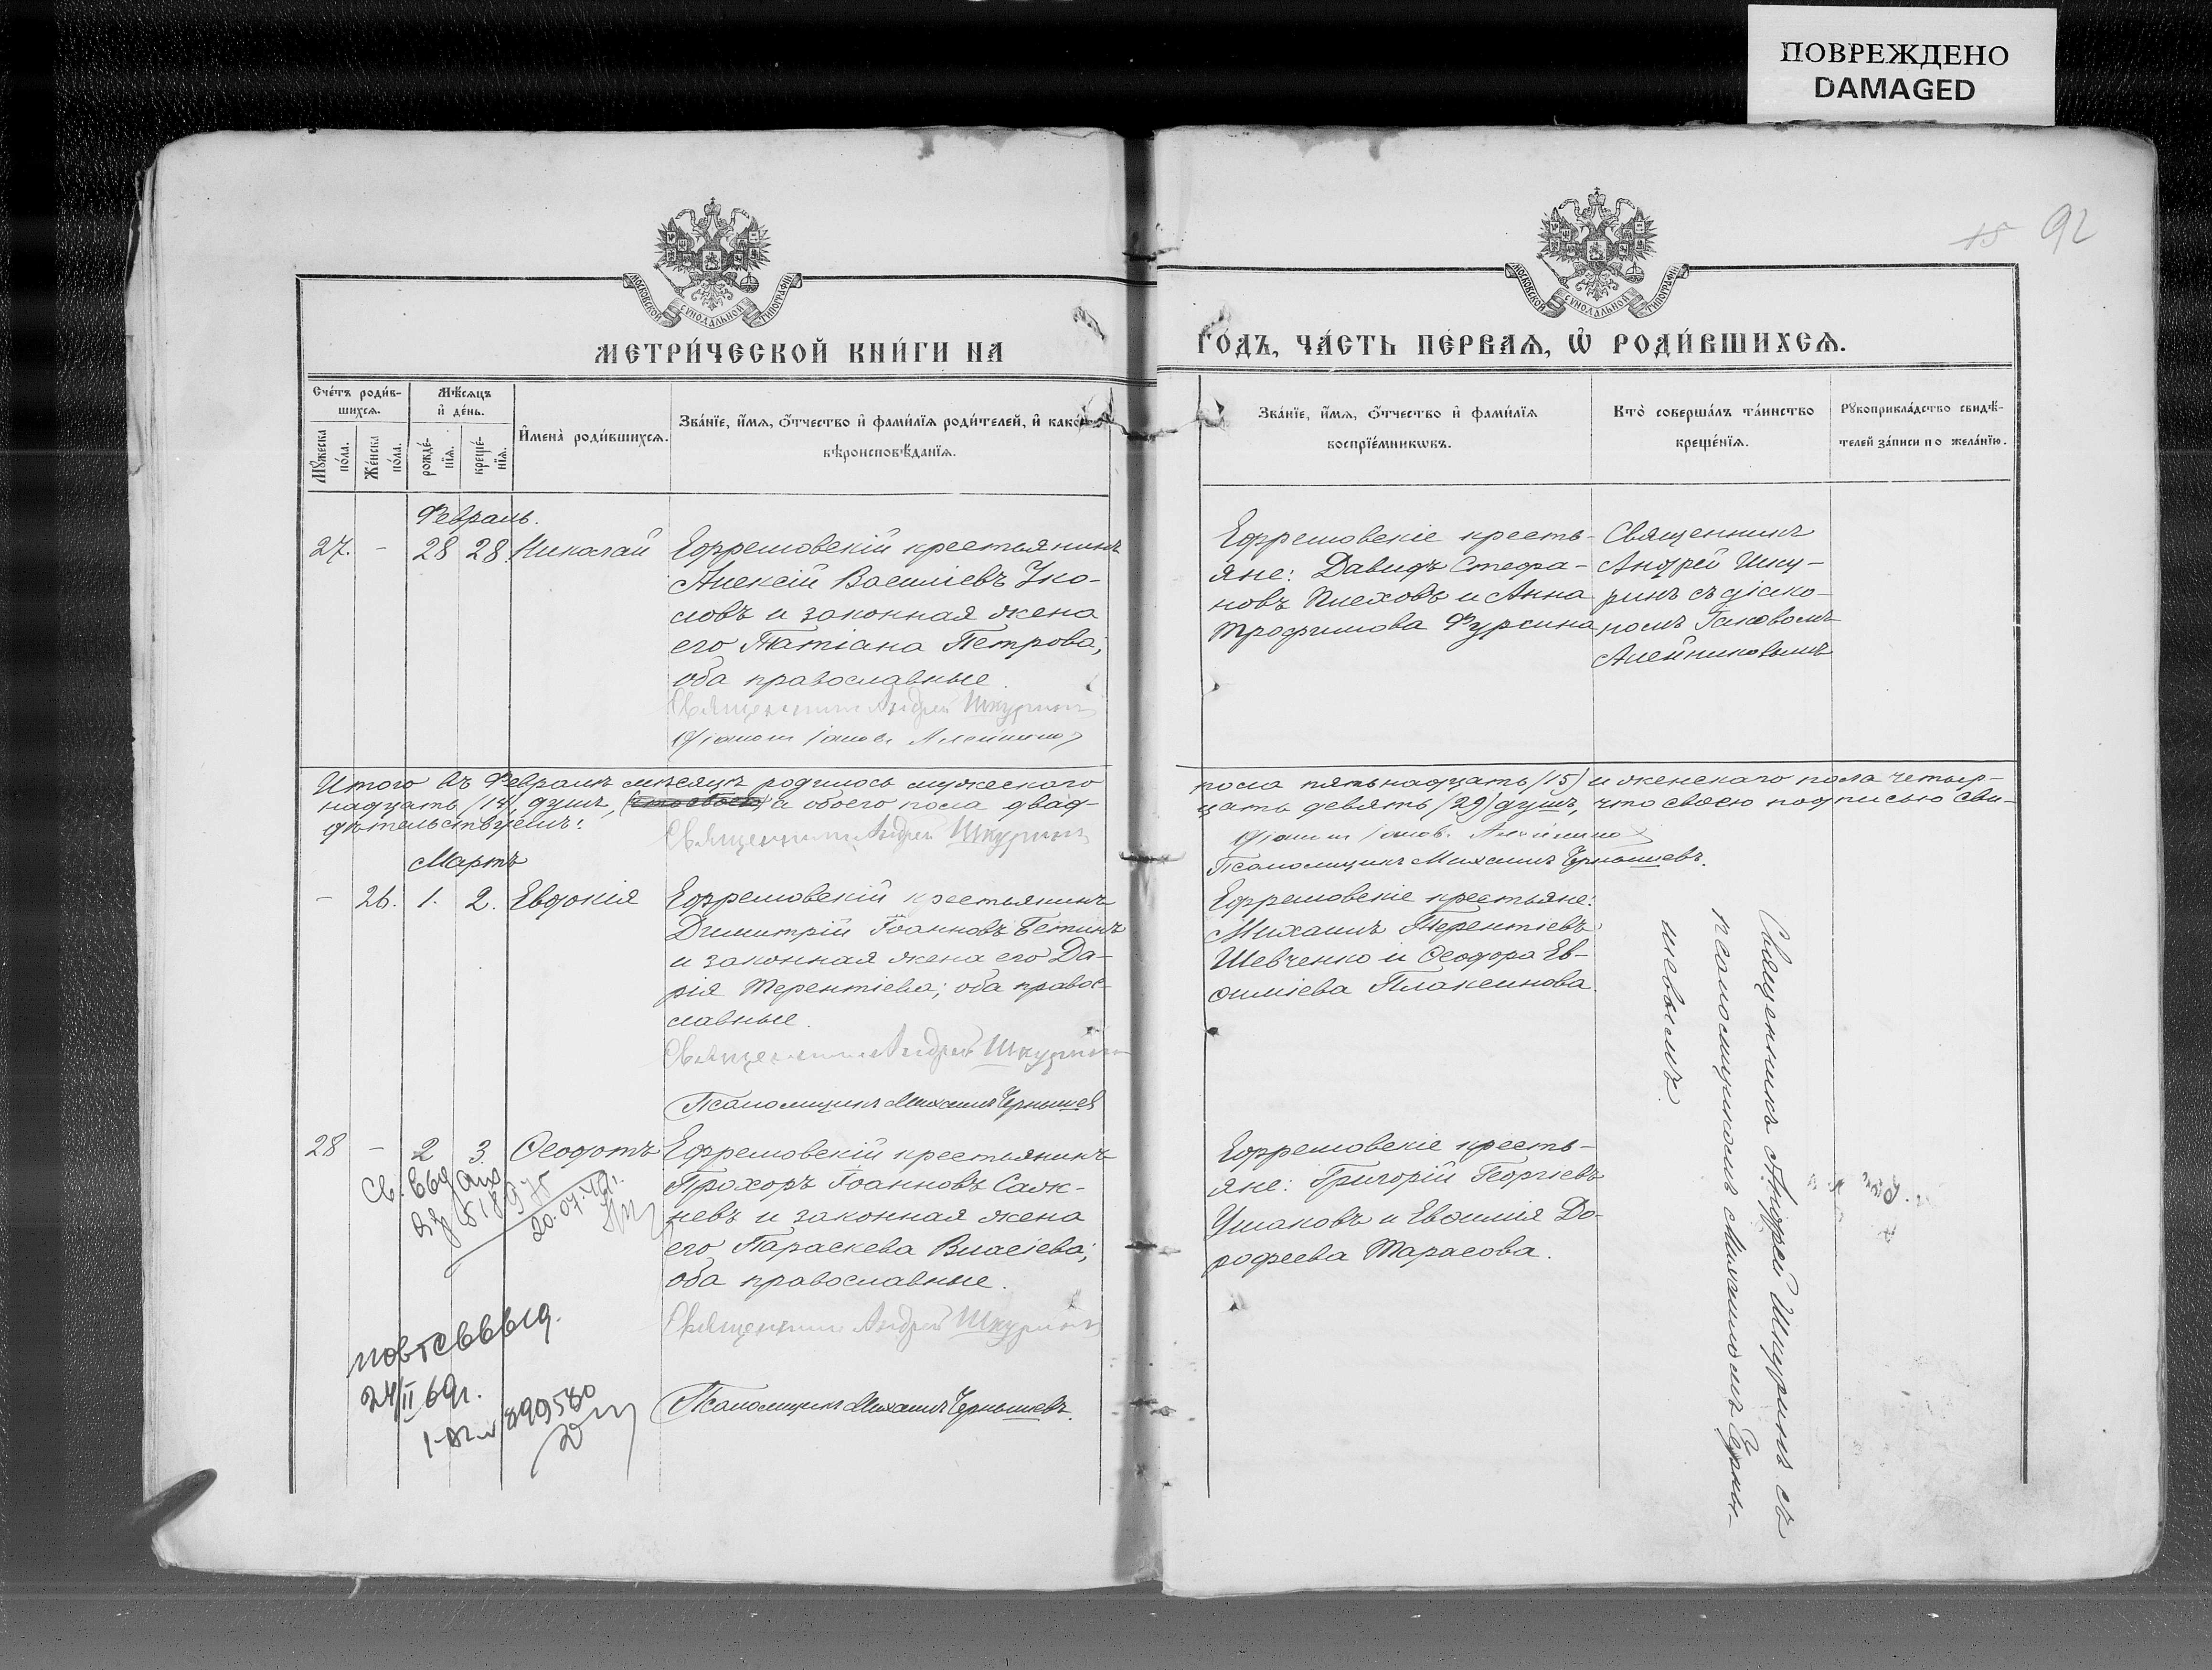 ПОВРЕЖДЕНО
DAMAGED
15 92
МОСКОВСКОЙ СѴНОДАЛЬНОЙ ТИПОГРАФІИ
МОСКОВСКОЙ СѴНОДАЛЬНОЙ ТИПОГРАФІИ
МЕТРИ́ЧЕСКОЙ КНИ́ГИ НА
ГО́ДЪ, ЧА́СТЬ ПЕ́РВАѦ, Ѡ҆ РОДИ́ВШИХСѦ.
Сче́тъ роди́в-
шихсѧ.
Мꙋ́жеска
по́ла.
Же́нска
по́ла.
Мѣ́сѧцъ
и҆ де́нь.
рожде́-
нїѧ.
креще́-
нїѧ.
И҆мена̀ роди́вшихсѧ.
Зва́нїе, и҆́мѧ, ѻ҆́тчество и҆ фами́лїѧ роди́телей, и҆ како́гѡ
вѣроисповѣ́данїѧ.
Зва́нїе, и҆́мѧ, ѻ҆́тчество и҆ фами́лїѧ
воспрїе́мникѡвъ.
Кто̀ соверша́лъ та́инство
креще́нїѧ.
Рꙋкоприкла́дство свидѣ́-
телей за́писи по жела́нїю.
Февраль.
27. - 28 28. Николай
Ефремовскій крестьянинъ
Алексій Василіевъ Уко-
ловъ и законная жена
его Татіана Петрова;
оба православные.
Священникъ Андрей Шкуринъ
Діаконъ Іаковъ Алейников
Ефремовскіе кресть-
яне: Давидъ Стефа-
новъ Плеховъ и Анна
Трофимова Фурсина
Священникъ
Андрей Шку-
ринъ съ діако-
номъ Іаковомъ
Алейниковымъ
Итого въ Февралѣ мѣсяцѣ родилось мужескаго
пола пятьнадцать /15/ и женскаго пола четыр-
надцать /14/ душъ, а обоего пола двад-
цать девять /29/ душъ, что своею подписью сви-
дѣтельствуемъ:
Священникъ Андрей Шкуринъ
Діаконъ Іаковъ Алейников
Псаломщикъ Михаилъ Чернышевъ.
Мартъ
- 26. 1. 2. Евдокія
Ефремовскій крестьянинъ
Димитрій Іоанновъ Бетинъ
и законная жена его Да-
рія Терентіева; оба правос-
лавные.
Священникъ Андрей Шкуринъ
Псаломщикъ Михаилъ Чернышев
Ефремовскіе крестьяне:
Михаилъ Терентіевъ
Шевченко и Ѳеодора Ев-
ѳиміева Плаксинова.
28 - 2 3. Ѳеодотъ
Ефремовскій крестьянинъ
Прохоръ Іоанновъ Саж-
невъ и законная жена
его Параскева Власіева;
оба православные.
Священникъ Андрей Шкуринъ
Псаломщикъ Михаилъ Чернышевъ.
Ефремовскіе кресть-
яне: Григорій Георгіевъ
Ушаковъ и Евѳимія До-
рофеева Тарасова.
Священникъ Андрей Шкуринъ съ
псаломщикомъ Михаиломъ Черны-
шевымъ.
Св. выд
20.07.
повт св выд.
24/II 69г.
899580